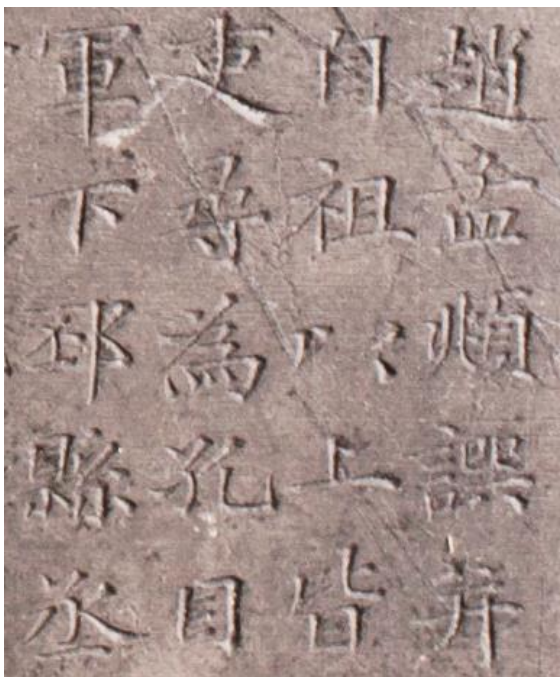 趙孟頫譔并
自祖以上皆
吏尋為孔目
軍下邳縣丞